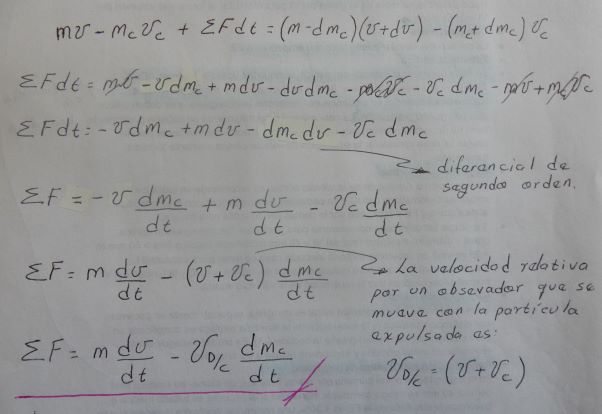 mv - m_c v_c + ΣF dt = (m - dm_c)(v + dv) - (m_c + dm_c) v_c
ΣF dt = mv - v dm_c + m dv - dv dm_c - m_c v_c - v_c dm_c - mv + m_c v_c
ΣF dt = - v dm_c + m dv - dm_c dv - v_c dm_c
diferencial de
segundo orden.
ΣF = - v dm_c/dt + m dv/dt - v_c dm_c/dt
ΣF = m dv/dt - (v + v_c) dm_c/dt
La velocidad relativa
por un obsevador que se
mueve con la partícula
expulsada es:
v_D/c = (v + v_c)
ΣF = m dv/dt - v_D/c dm_c/dt